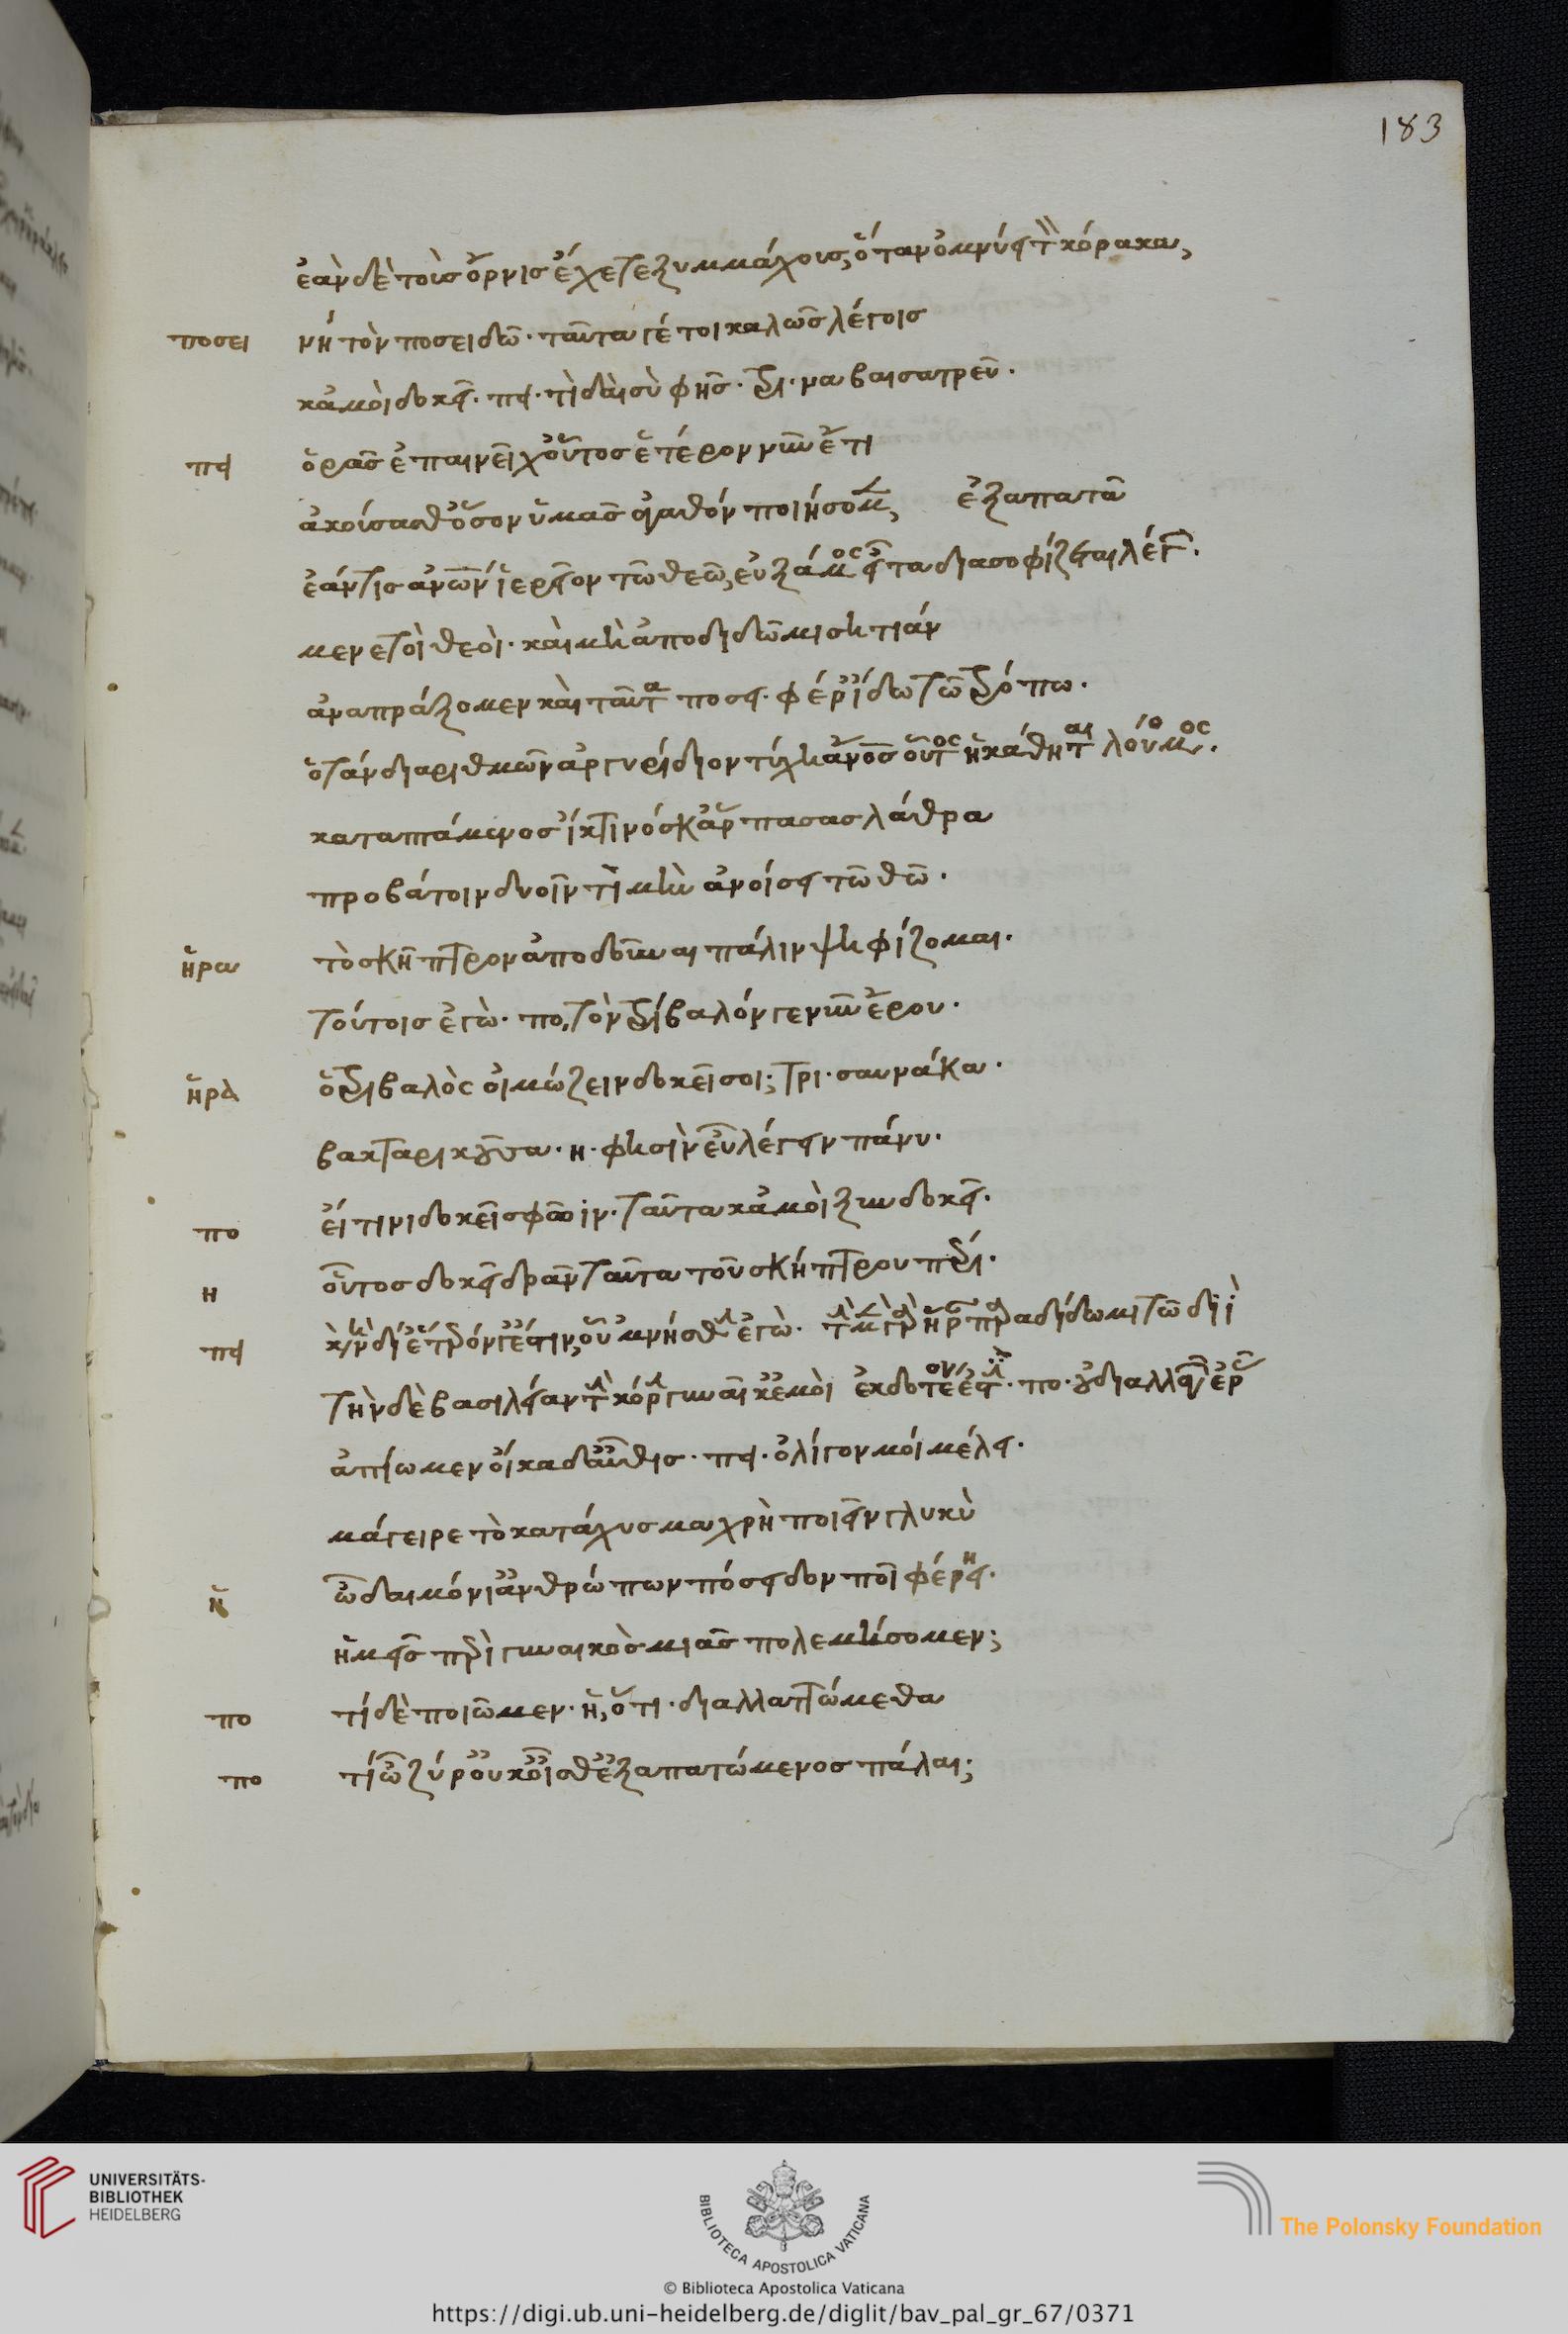 183
ἐὰν δὲ τοὺς ὄρνις ἔχετε ξυμμάχους, ὅταν ὀμνύει τὸν κόρακα,
ποσει νὴ τὸν ποσειδῶ· ταῦτα γέ τοι καλῶς λέγοις
κἀμοὶ δοκεῖ· πει· τί δαὶ σὺ φῄς· τρι· ναβαισατρεῦ·
πει ὁρᾶς ἐπαινεῖ χοὖτος ἕτερον νῦν ἔτι
ἀκούσαθ' ὅσον ὑμᾶς ἀγαθὸν ποιήσομεν, ἐξαπατᾶ
ἐάν τις ἀνων ἱερεῖον τῶ θεῶ, εὐξάμενος εἶτα διασοφίζεται λέγων·
μενετοὶ θεοὶ· καὶ μὴ ἀποδιδῶ μισητιάν
ἀναπράξομεν καὶ ταῦτα ποσει· φέρ' ἴδω τῶ τρόπω·
ὅταν διαριθμῶν ἀργυρίδιον τύχη ἄνος οὗτος ἢ κάθηται λούμενος·
καταπτάμενος ἰκτῖνος ἁρπάσας λάθρα
προβάτοιν δυοῖν τιμὴν ἀνοίσει τῶ θῶ·
ἡρα τὸ σκῆπτρον ἀποδοῦναι πάλιν ψηφίζομαι·
τούτοις ἐγὼ· πο, τὸν τρίβαλόν γε νῦν ἔρου·
ἡρὰ ὁ τριβαλὸς οἰμώζειν δοκεῖ σοι; τρι· σαυνάκα·
βακταρικροῦσα· η· φησὶν εὖ λέγειν πάνυ·
πο εἴ τινι δοκεῖ σφῶιν· ταῦτα κἀμοὶ ξυνδοκεῖ·
η οὗτος δοκεῖ δρᾶν ταῦτα τοῦ σκήπτρου πέρι·
πει καὶ νὴ δί' ἕτερόν γ' ἐστιν, οὗ 'μνήσθην ἐγὼ· τὴν μὲν γὰρ ἥραν παραδίδωμι τῶ διὶ
τὴν δὲ βασίλειαν τὴν κόρην γυναῖκ' ἐμοὶ ἐκδοτέον ἐστὶν· πο· οὐ διαλλαγῶν ἐρᾶς
ἀπίωμεν οἴκαδ' αὖθις· πει· ὀλίγον μοι μέλει·
μάγειρε τὸ κατάχυσμα χρὴ ποιεῖν γλυκὺ
ἡ ὦ δαιμόνι' ἀνθρώπων πόσειδον ποῖ φέρη·
ἡμεῖς περὶ γυναικὸς μιᾶς πολεμήσομεν;
πο τί δὲ ποιῶμεν· ἡ, ὅτι· διαλλαττώμεθα
πο τί ὦ ζύρ' οὐκ οἶσθ' ἐξαπατώμενος πάλαι;
UNIVERSITÄTS-
BIBLIOTHEK
HEIDELBERG
BIBLIOTECA APOSTOLICA VATICANA
The Polonsky Foundation
© Biblioteca Apostolica Vaticana
https://digi.ub.uni-heidelberg.de/diglit/bav_pal_gr_67/0371